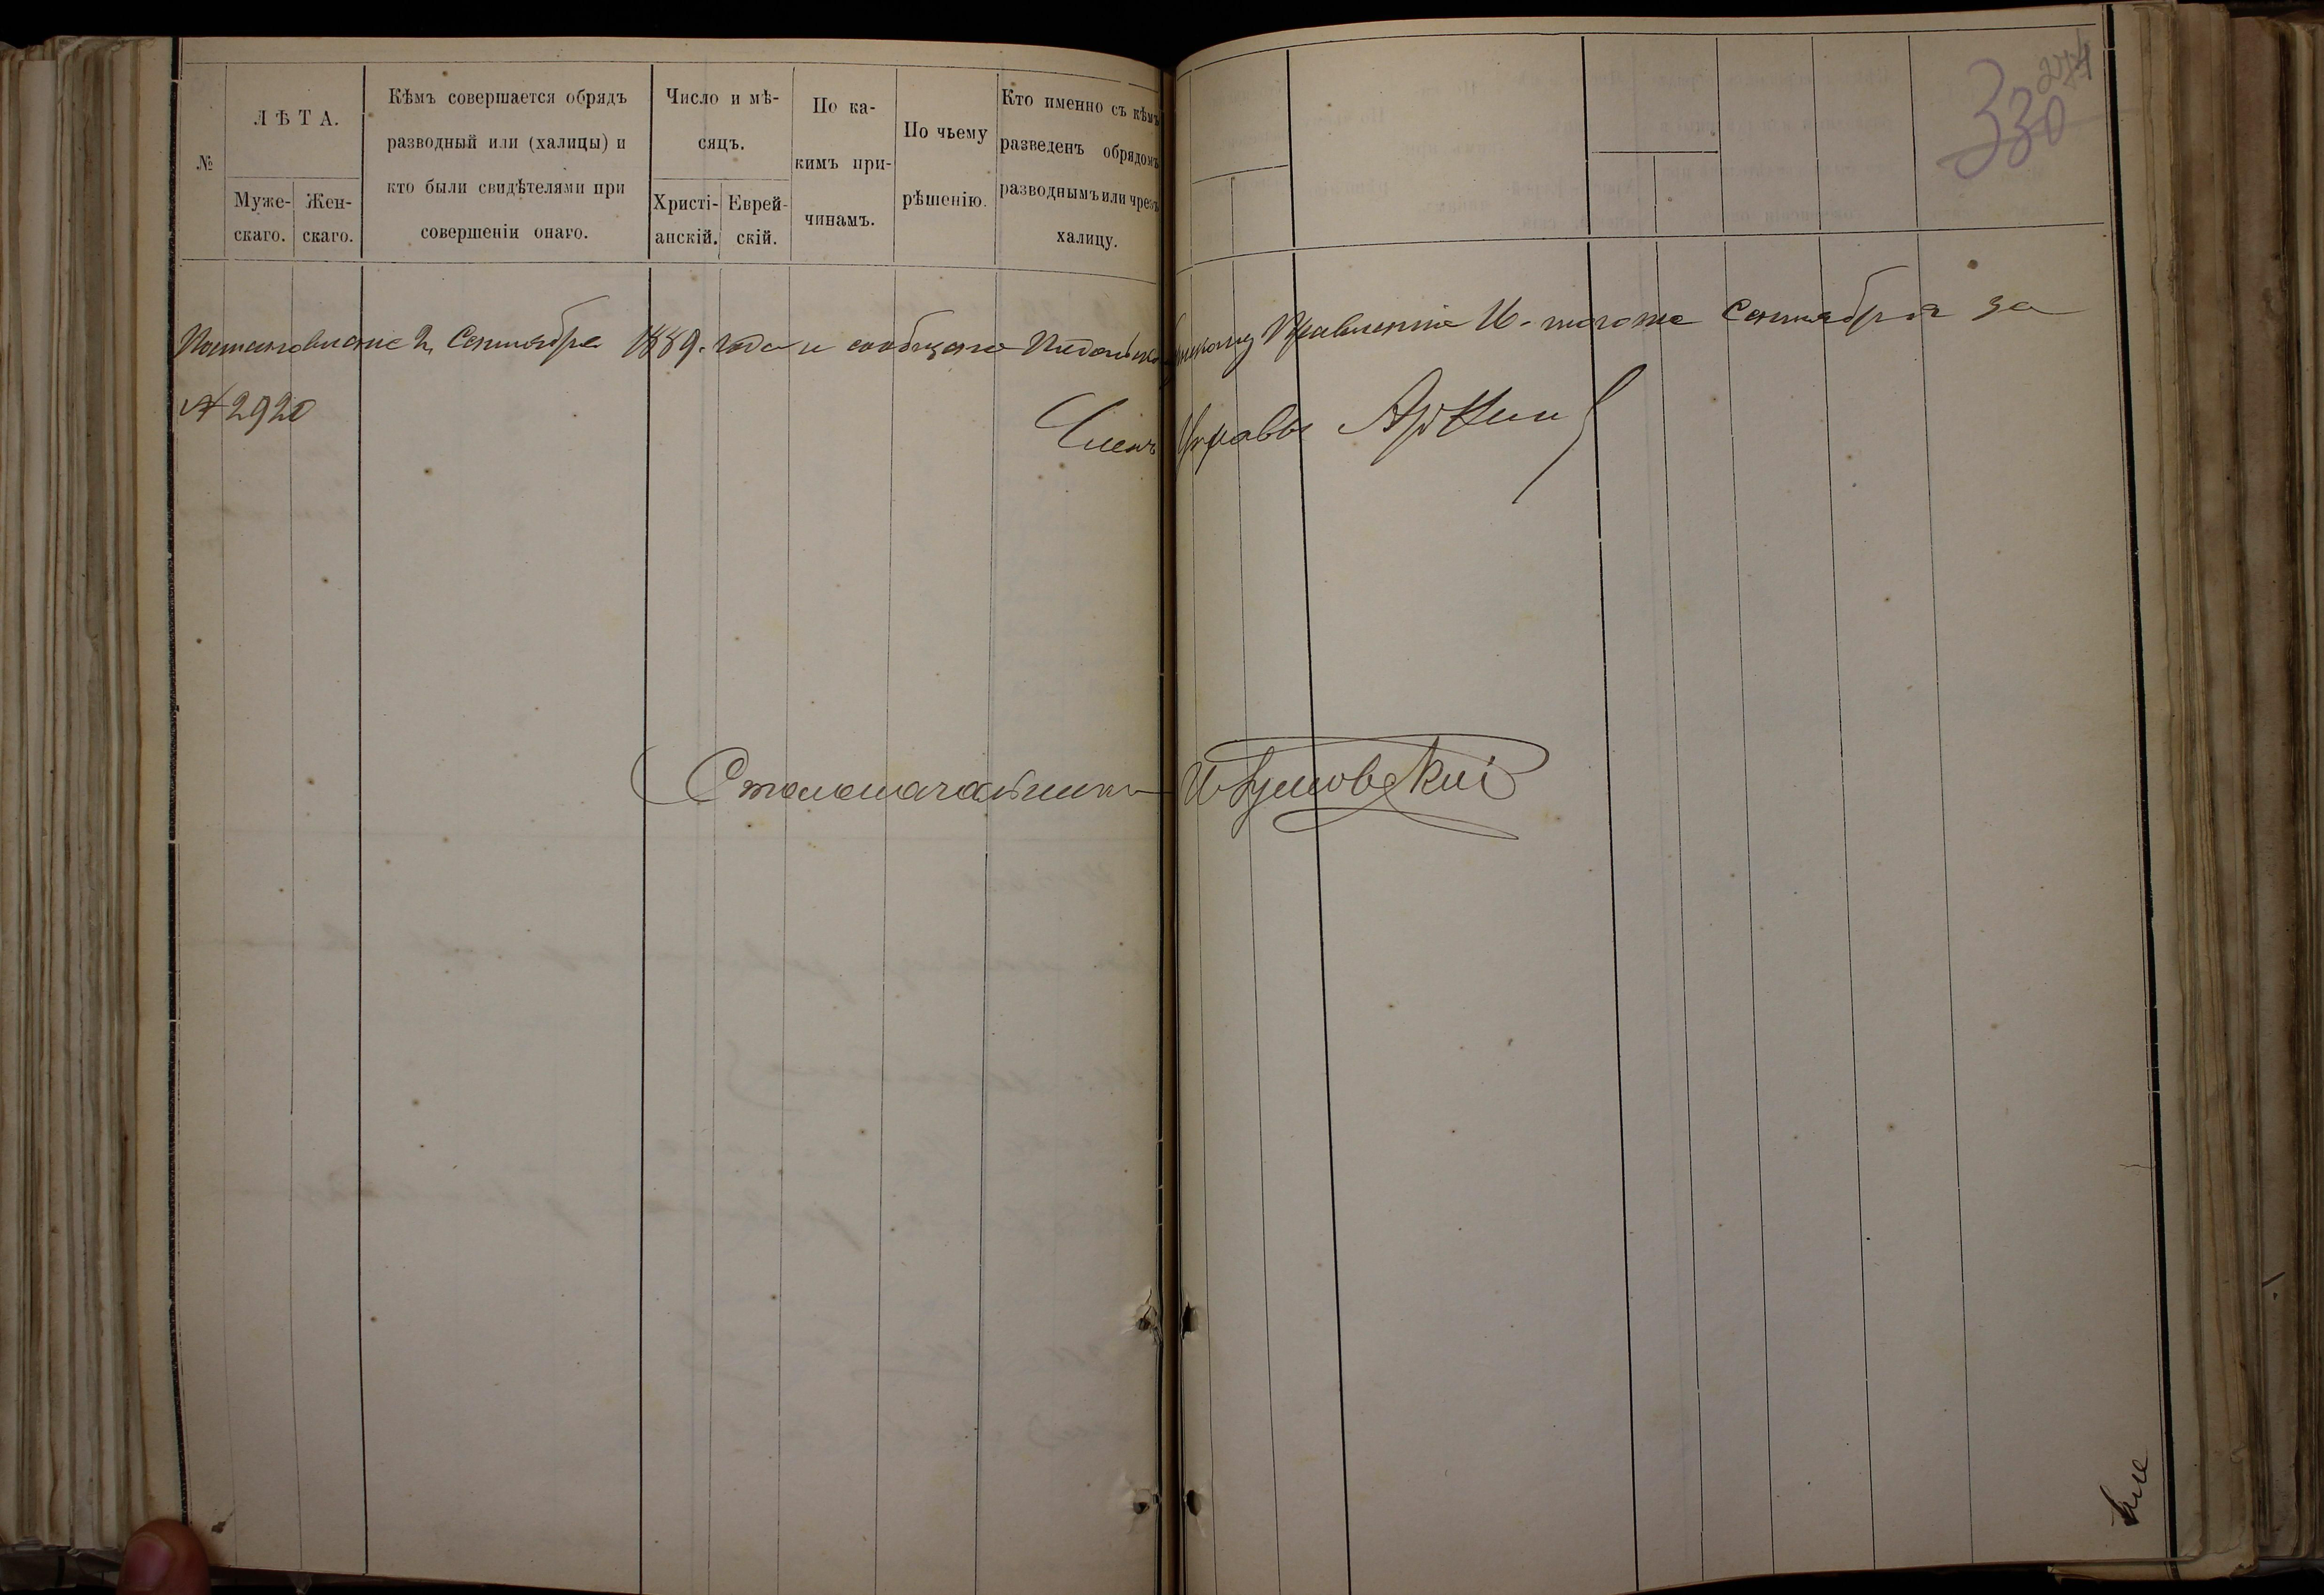 №
ЛѢТА.
Муже-
скаго.
Жен-
скаго.
Кѣмъ совершается обрядъ
разводный или (халицы) и
кто были свидѣтелями при
совершеніи онаго.
Число и мѣ-
сяцъ.
Христі-
анскій.
Еврей-
скій.
По ка-
кимъ при-
чинамъ.
По чьему
рѣшенію.
Кто именно съ кѣмъ
разведенъ обрядомъ
разводнымъ или чрезъ
халицу.
330
274
Сентября 1889 года и сообщено Правленію 16-того же Сентября за
№ 2920
Членъ Управы
Столоначальникъ